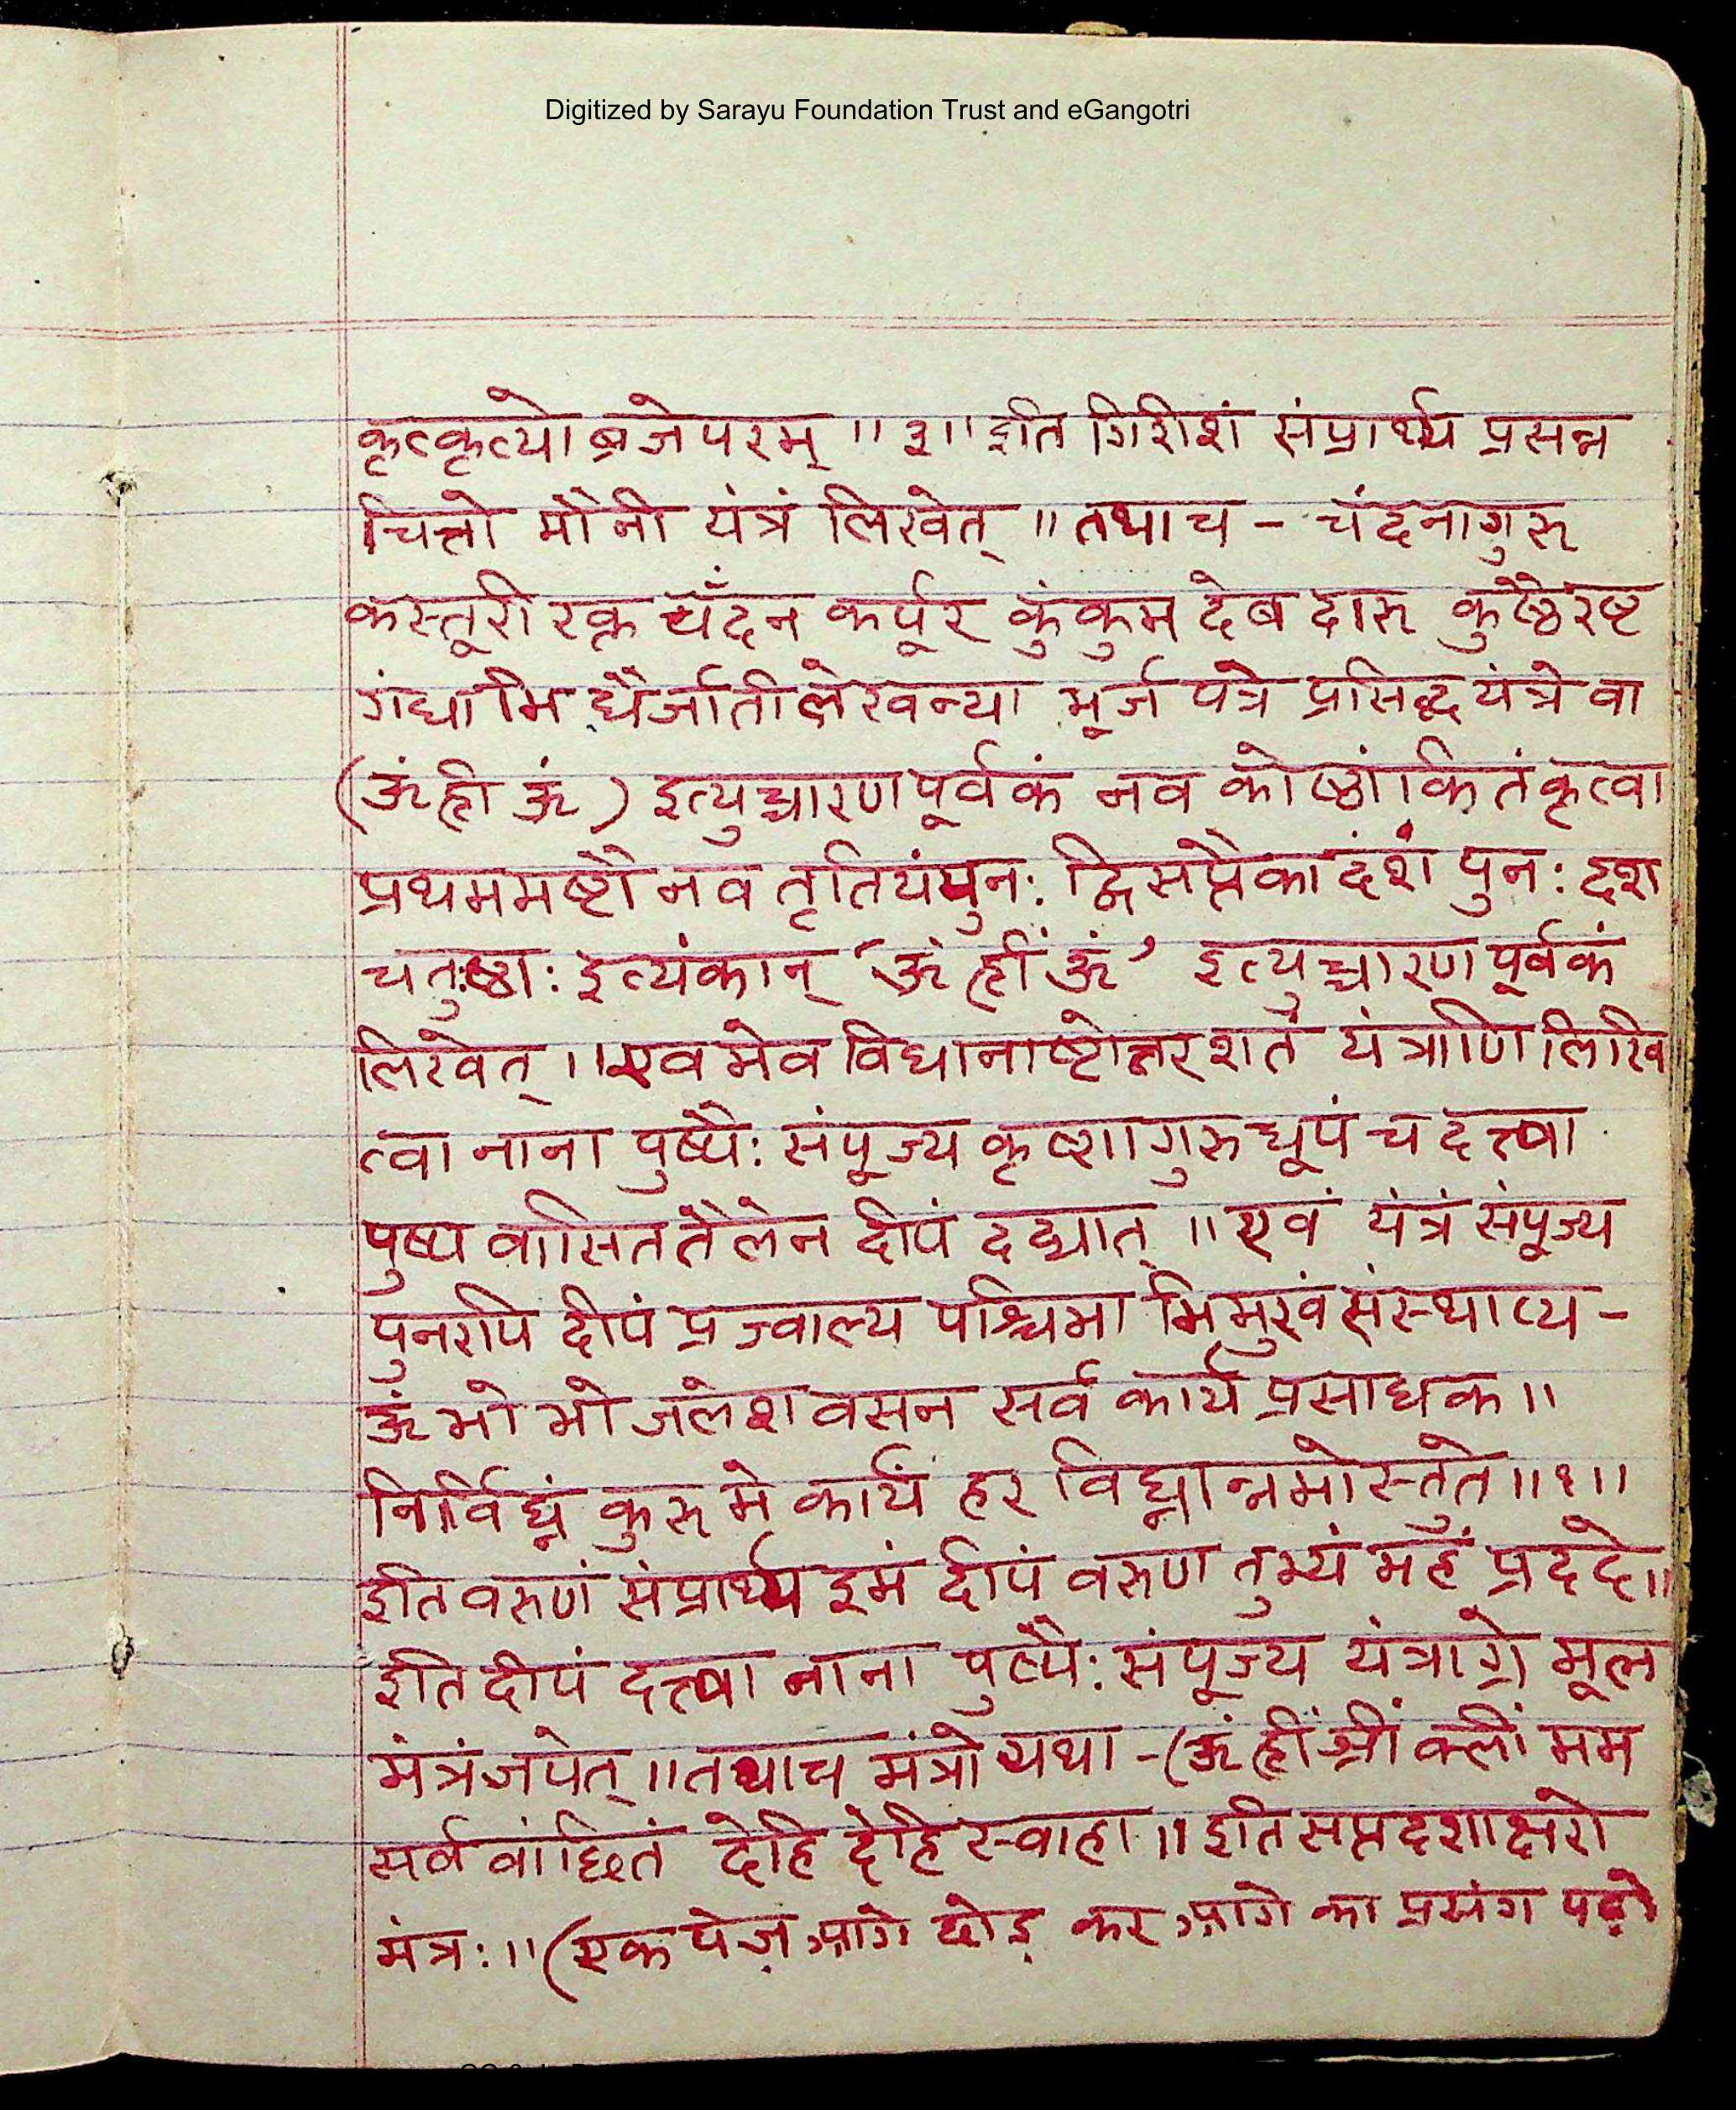 Digitized by Sarayu Foundation Trust and eGangotri
कृत्कृत्यो ब्रजेपरम् ॥३॥ इति गिरीशं संप्रार्थ्य प्रसन्न
चित्तो मौनी यंत्रं लिखेत् ॥ तथाच - चंदनागुरु
कस्तूरी रक्त चँदन कर्पूर कुंकुम देब दारु कुष्ठैरष्ट
गंधाभि र्धैर्जातीलेखन्या भूर्ज पत्रे प्रसिद्ध यंत्रे वा
(ऊं ह्रीं ऊं) इत्युच्चारण पूर्वकं नव कोष्ठांकितं कृत्वा
प्रथममष्टौ नव तृतियं पुनः द्विसप्तैकादंशं पुनः दृश
चतुःष्ठाः इत्यंकान् ‘ऊं ह्रीं ऊं’ इत्युच्चारण पूर्वकं
लिखेत् ॥ एवमेव विधानाष्टोत्तरशतं यंत्राणि लिखि
त्वा नाना पुष्पैः संपूज्य कृष्णागुरु धूपं च दत्त्वा
पुष्प वासित तैलेन दीपं दद्यात् ॥ एवं यंत्रं संपूज्य
पुनरपि दीपं प्रज्वाल्य पश्चिमा भिमुखं संस्थाप्य -
ऊं भो भो जलेश वसन सर्व कार्य प्रसाधक ॥
निर्विघ्नं कुरु मे कार्यं हर विघ्नान्नमोस्तुते ॥१॥
इति वरुणं संप्रार्थ्य इमं दीपं वरुण तुभ्यं महं प्रददे ॥
इति दीपं दत्त्वा नाना पुष्पैः संपूज्य यंत्राग्रे मूल
मंत्रं जपेत् ॥ तथाच मंत्रो यथा - (ऊं ह्रीं श्रीं क्लीं मम
सर्व वांछितं देहि देहि स्वाहा ॥ इति सप्तदशाक्षरो
मंत्रः ॥ (एक पेज़ आगे छोड़ कर आगे का प्रसंग पढ़ो